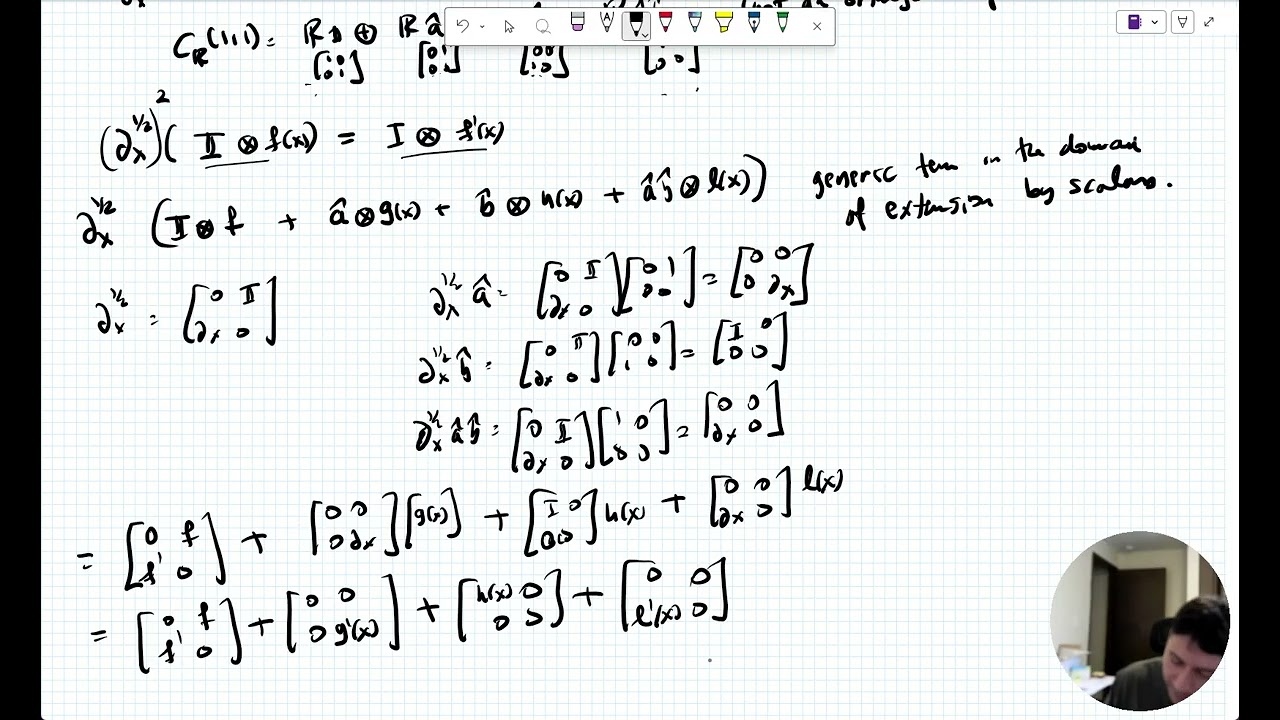 C_ℝ(1,1) = ℝ1 ⊕ ℝ â
[1 0; 0 1] [0 1; 0 0] [0 0; 1 0]
(∂ₓ^{1/2})² (𝕀 ⊗ f(x)) = I ⊗ f'(x)
∂ₓ^{1/2} (𝕀 ⊗ f + â ⊗ g(x) + b̂ ⊗ h(x) + âb̂ ⊗ l(x)) generic term in the domain
of extension by scalars.
∂ₓ^{1/2} = [0 𝕀; ∂ₓ 0]
∂ₓ^{1/2} â = [0 𝕀; ∂ₓ 0] [0 1; 0 0] = [0 0; 0 ∂ₓ]
∂ₓ^{1/2} b̂ = [0 𝕀; ∂ₓ 0] [0 0; 1 0] = [I 0; 0 0]
∂ₓ^{1/2} âb̂ = [0 𝕀; ∂ₓ 0] [1 0; 0 0] = [0 0; ∂ₓ 0]
= [0 f; f' 0] + [0 0; 0 ∂ₓ] [g(x)] + [I 0; 0 0] h(x) + [0 0; ∂ₓ 0] l(x)
= [0 f; f' 0] + [0 0; 0 g'(x)] + [h(x) 0; 0 0] + [0 0; l'(x) 0]